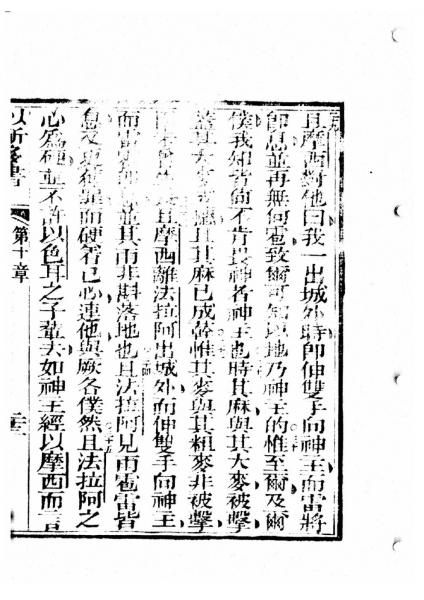 且摩西對他曰我一出城外時即伸雙手向神主而雷將
即息並再無何雹致爾可知以地乃神主的惟至爾及爾
僕我知皆尚不肯畏神者神主也時其麻與其大麥被擊
蓋其大麥已穗且其麻已成幹惟其麥與其粗麥非被擊
且摩西離法拉阿出城外而伸雙手向神主
而雷與雹即息並其雨非斟落地也且法拉阿見雨雹雷皆
息又更獲罪而硬署己心連他與厥各僕然且法拉阿之
心為硬並不許以色耳之子輩去如神主經以摩西而言
以所多書 第十章 二十三